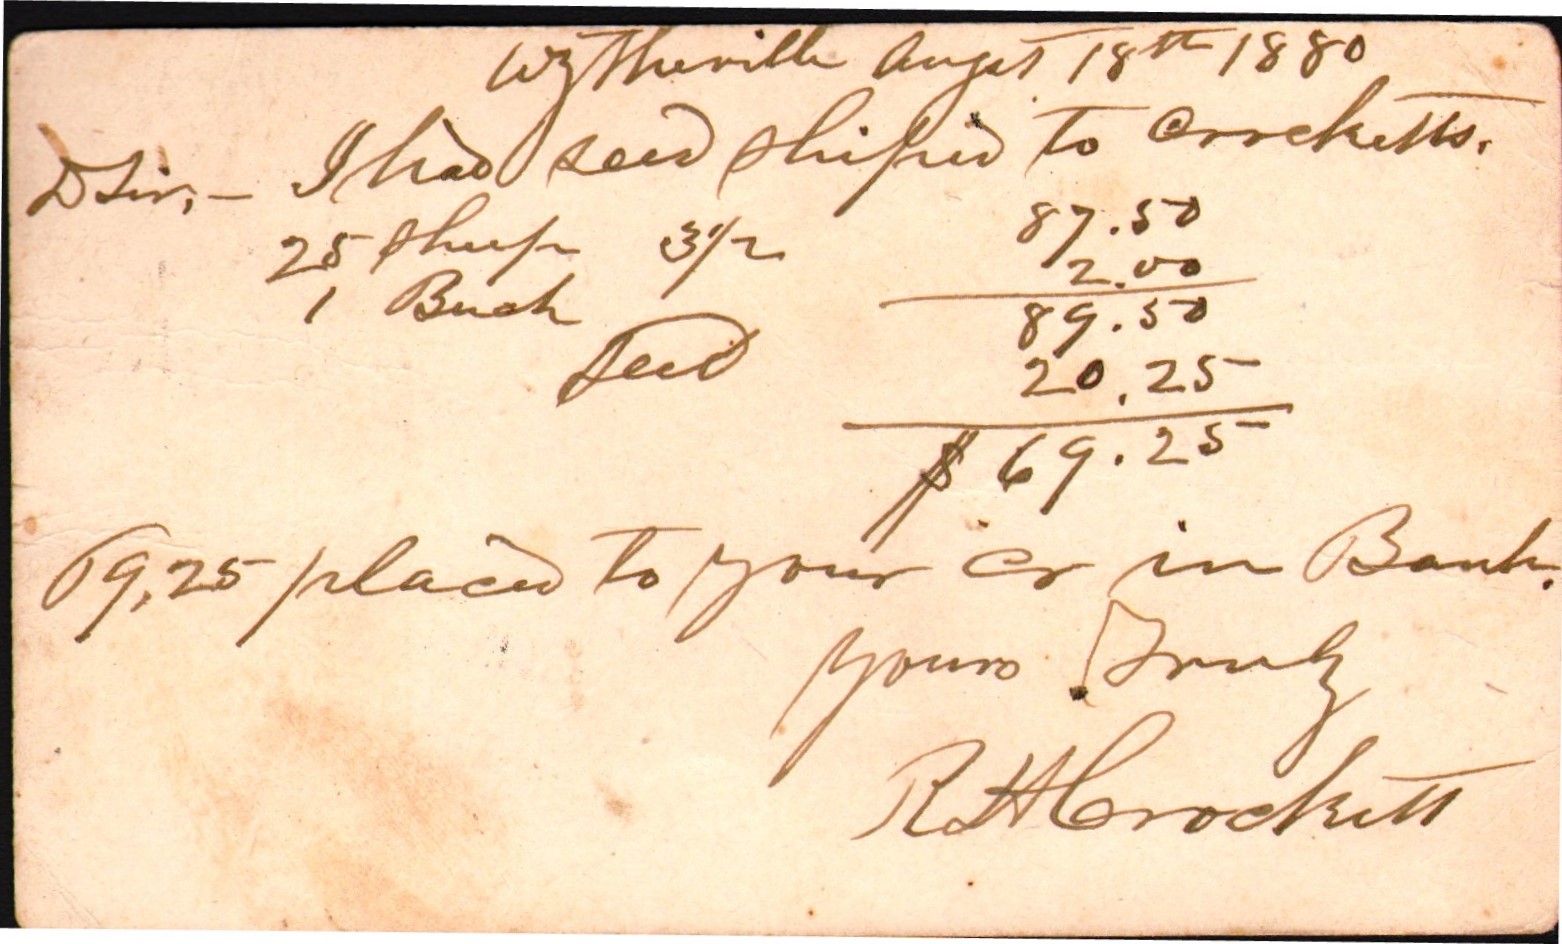 Wytheville Augst 18th 1880
D Sir,- I had seed shiped to Crocketts.
25 Sheep 3 1/2 87.50
1 Buck 2.00
89.50
Seed 20.25
$ 69.25
69,25 placed to your cr in Bank.
yours Truly
R H Crockett